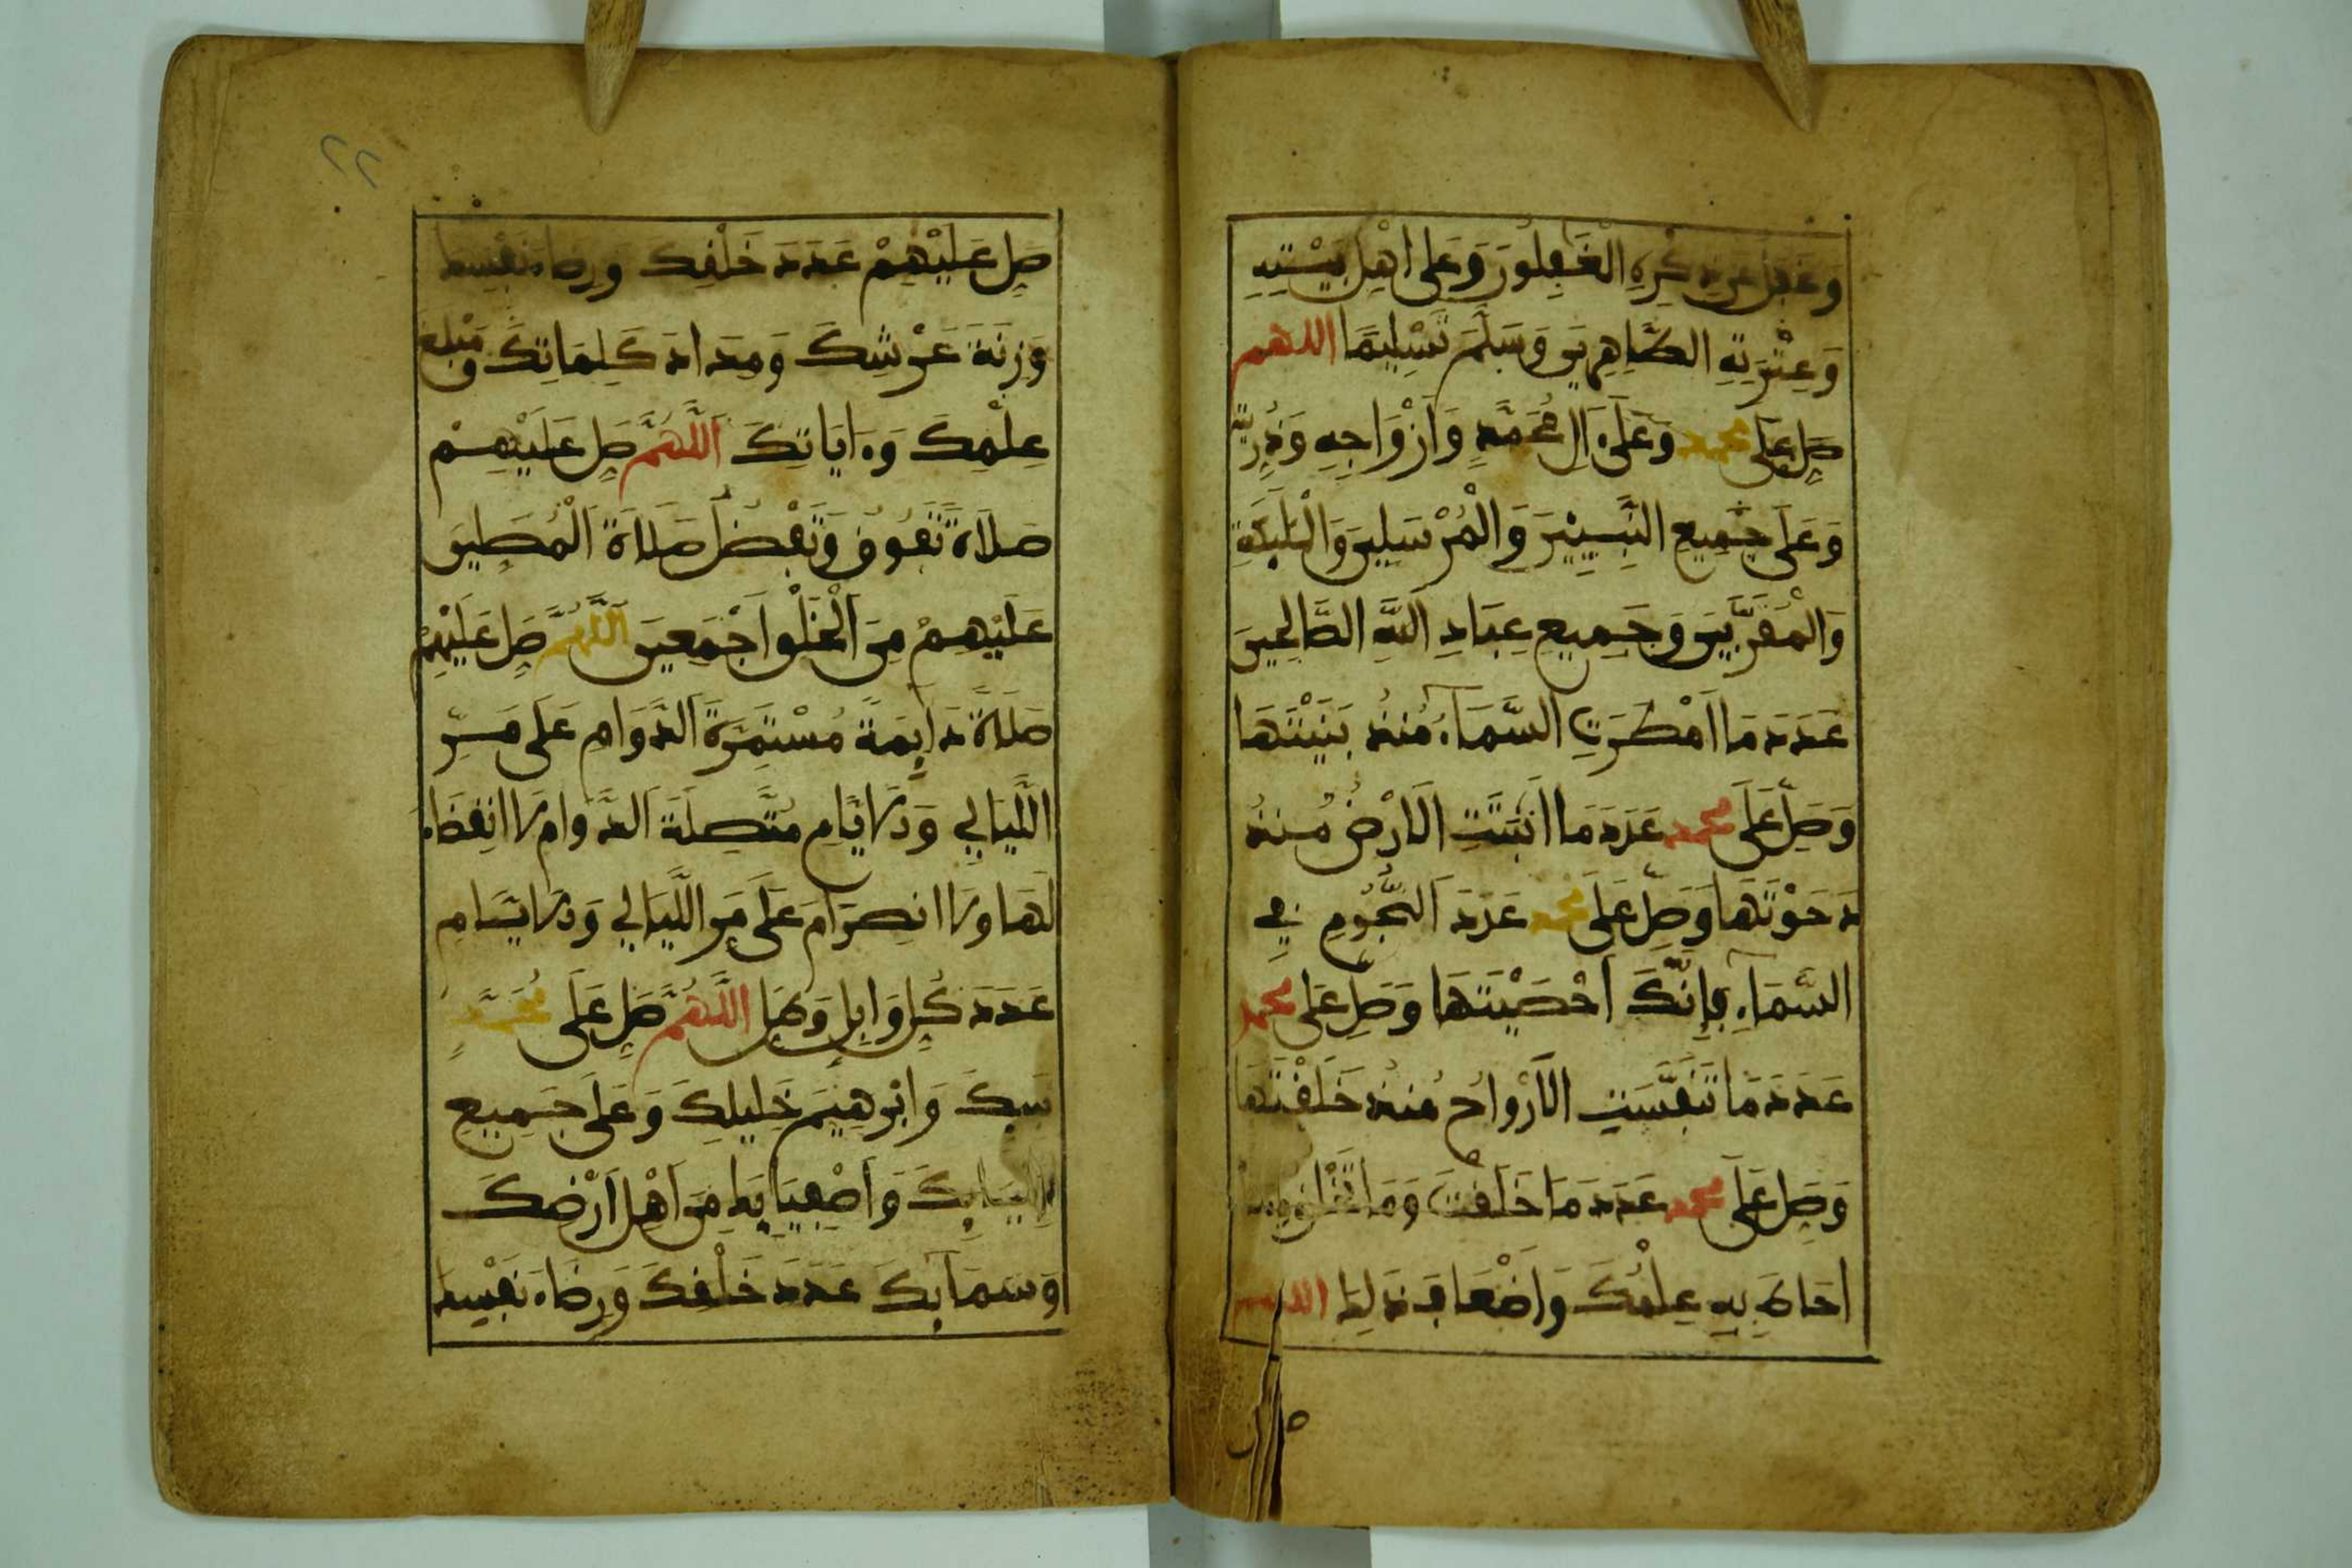 وَغَفَلَ عَن ذِكْرِهِ الْغَٰفِلُونَ وَعَلَى أَهْلِ بَيْتِهِ
وَعِتْرَتِهِ الطَّاهِرِينَ وَسَلِّمْ تَسْلِيمًا اللهم
صَلِّ عَلَى محمد وَعَلَىٰ ءَالِ مُحَمَّدٍ وَأَزْوَاجِهِ وَذُرِّيَّتِهِ
وَعَلَى جَمِيعِ النَّبِيِّينَ وَالْمُرْسَلِينَ وَالْمَلَٰئِكَةِ
وَالْمُقَرَّبِينَ وَجَمِيعِ عِبَادِ اللَّهِ الصَّالِحِينَ
عَدَدَ مَا أَمْطَرَتِ السَّمَاءُ مُنذُ بَنَيْتَهَا
وَصَلِّ عَلَى محمد عَدَدَ مَا أَنبَتَتِ الْأَرْضُ مُنذُ
دَحَوْتَهَا وَصَلِّ عَلَى محمد عَدَدَ النُّجُومِ فِي
السَّمَاءِ فَإِنَّكَ أَحْصَيْتَهَا وَصَلِّ عَلَى محمد
عَدَدَ مَا تَنَفَّسَتِ الْأَرْوَاحُ مُنذُ خَلَقْتَهَا
وَصَلِّ عَلَى محمد عَدَدَ مَا خَلَقْتَ وَمَا تَخْلُقُ وَمَا
أَحَاطَ بِهِ عِلْمُكَ وَأَضْعَافَ ذَلِكَ اللهم
صل
٢٢
صَلِّ عَلَيْهِمْ عَدَدَ خَلْقِكَ وَرِضَاءَ نَفْسِكَ
وَزِنَةَ عَرْشِكَ وَمِدَادَ كَلِمَاتِكَ وَمَبْلَغَ
عِلْمِكَ وَءَايَاتِكَ اللَّهُمَّ صَلِّ عَلَيْهِمْ
صَلَاةً تَفُوقُ وَتَفْضُلُ صَلَاةَ الْمُصَلِّينَ
عَلَيْهِمْ مِنَ الْخَلْقِ أَجْمَعِينَ اللَّهُمَّ صَلِّ عَلَيْهِمْ
صَلَاةً دَائِمَةً مُسْتَمِرَّةَ الدَّوَامِ عَلَى مَرِّ
اللَّيَالِي وَالْأَيَّامِ مُتَّصِلَةَ الدَّوَامِ لَا انقِضَاءَ
لَهَا وَلَا انصِرَامَ عَلَى مَرِّ اللَّيَالِي وَالْأَيَّامِ
عَدَدَ كُلِّ وَابِلٍ وَطَلٍّ اللَّهُمَّ صَلِّ عَلَى مُحَمَّدٍ
نَبِيِّكَ وَإِبْرَهِيمَ خَلِيلِكَ وَعَلَى جَمِيعِ
أَنْبِيَائِكَ وَأَصْفِيَائِكَ مِنْ أَهْلِ أَرْضِكَ
وَسَمَائِكَ عَدَدَ خَلْقِكَ وَرِضَاءَ نَفْسِكَ